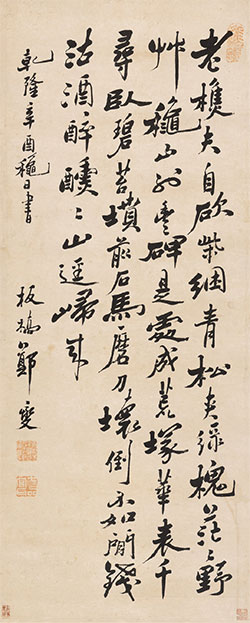 老樵夫自砍柴綑青松夾綠槐茫〻野
艸龝山外豐碑是處成荒塚華表千
尋臥碧苔墳前石馬磨刀壞倒不如閒錢
沽酒醉醺〻山逕歸來
乾隆辛酉龝日書
板橋鄭燮